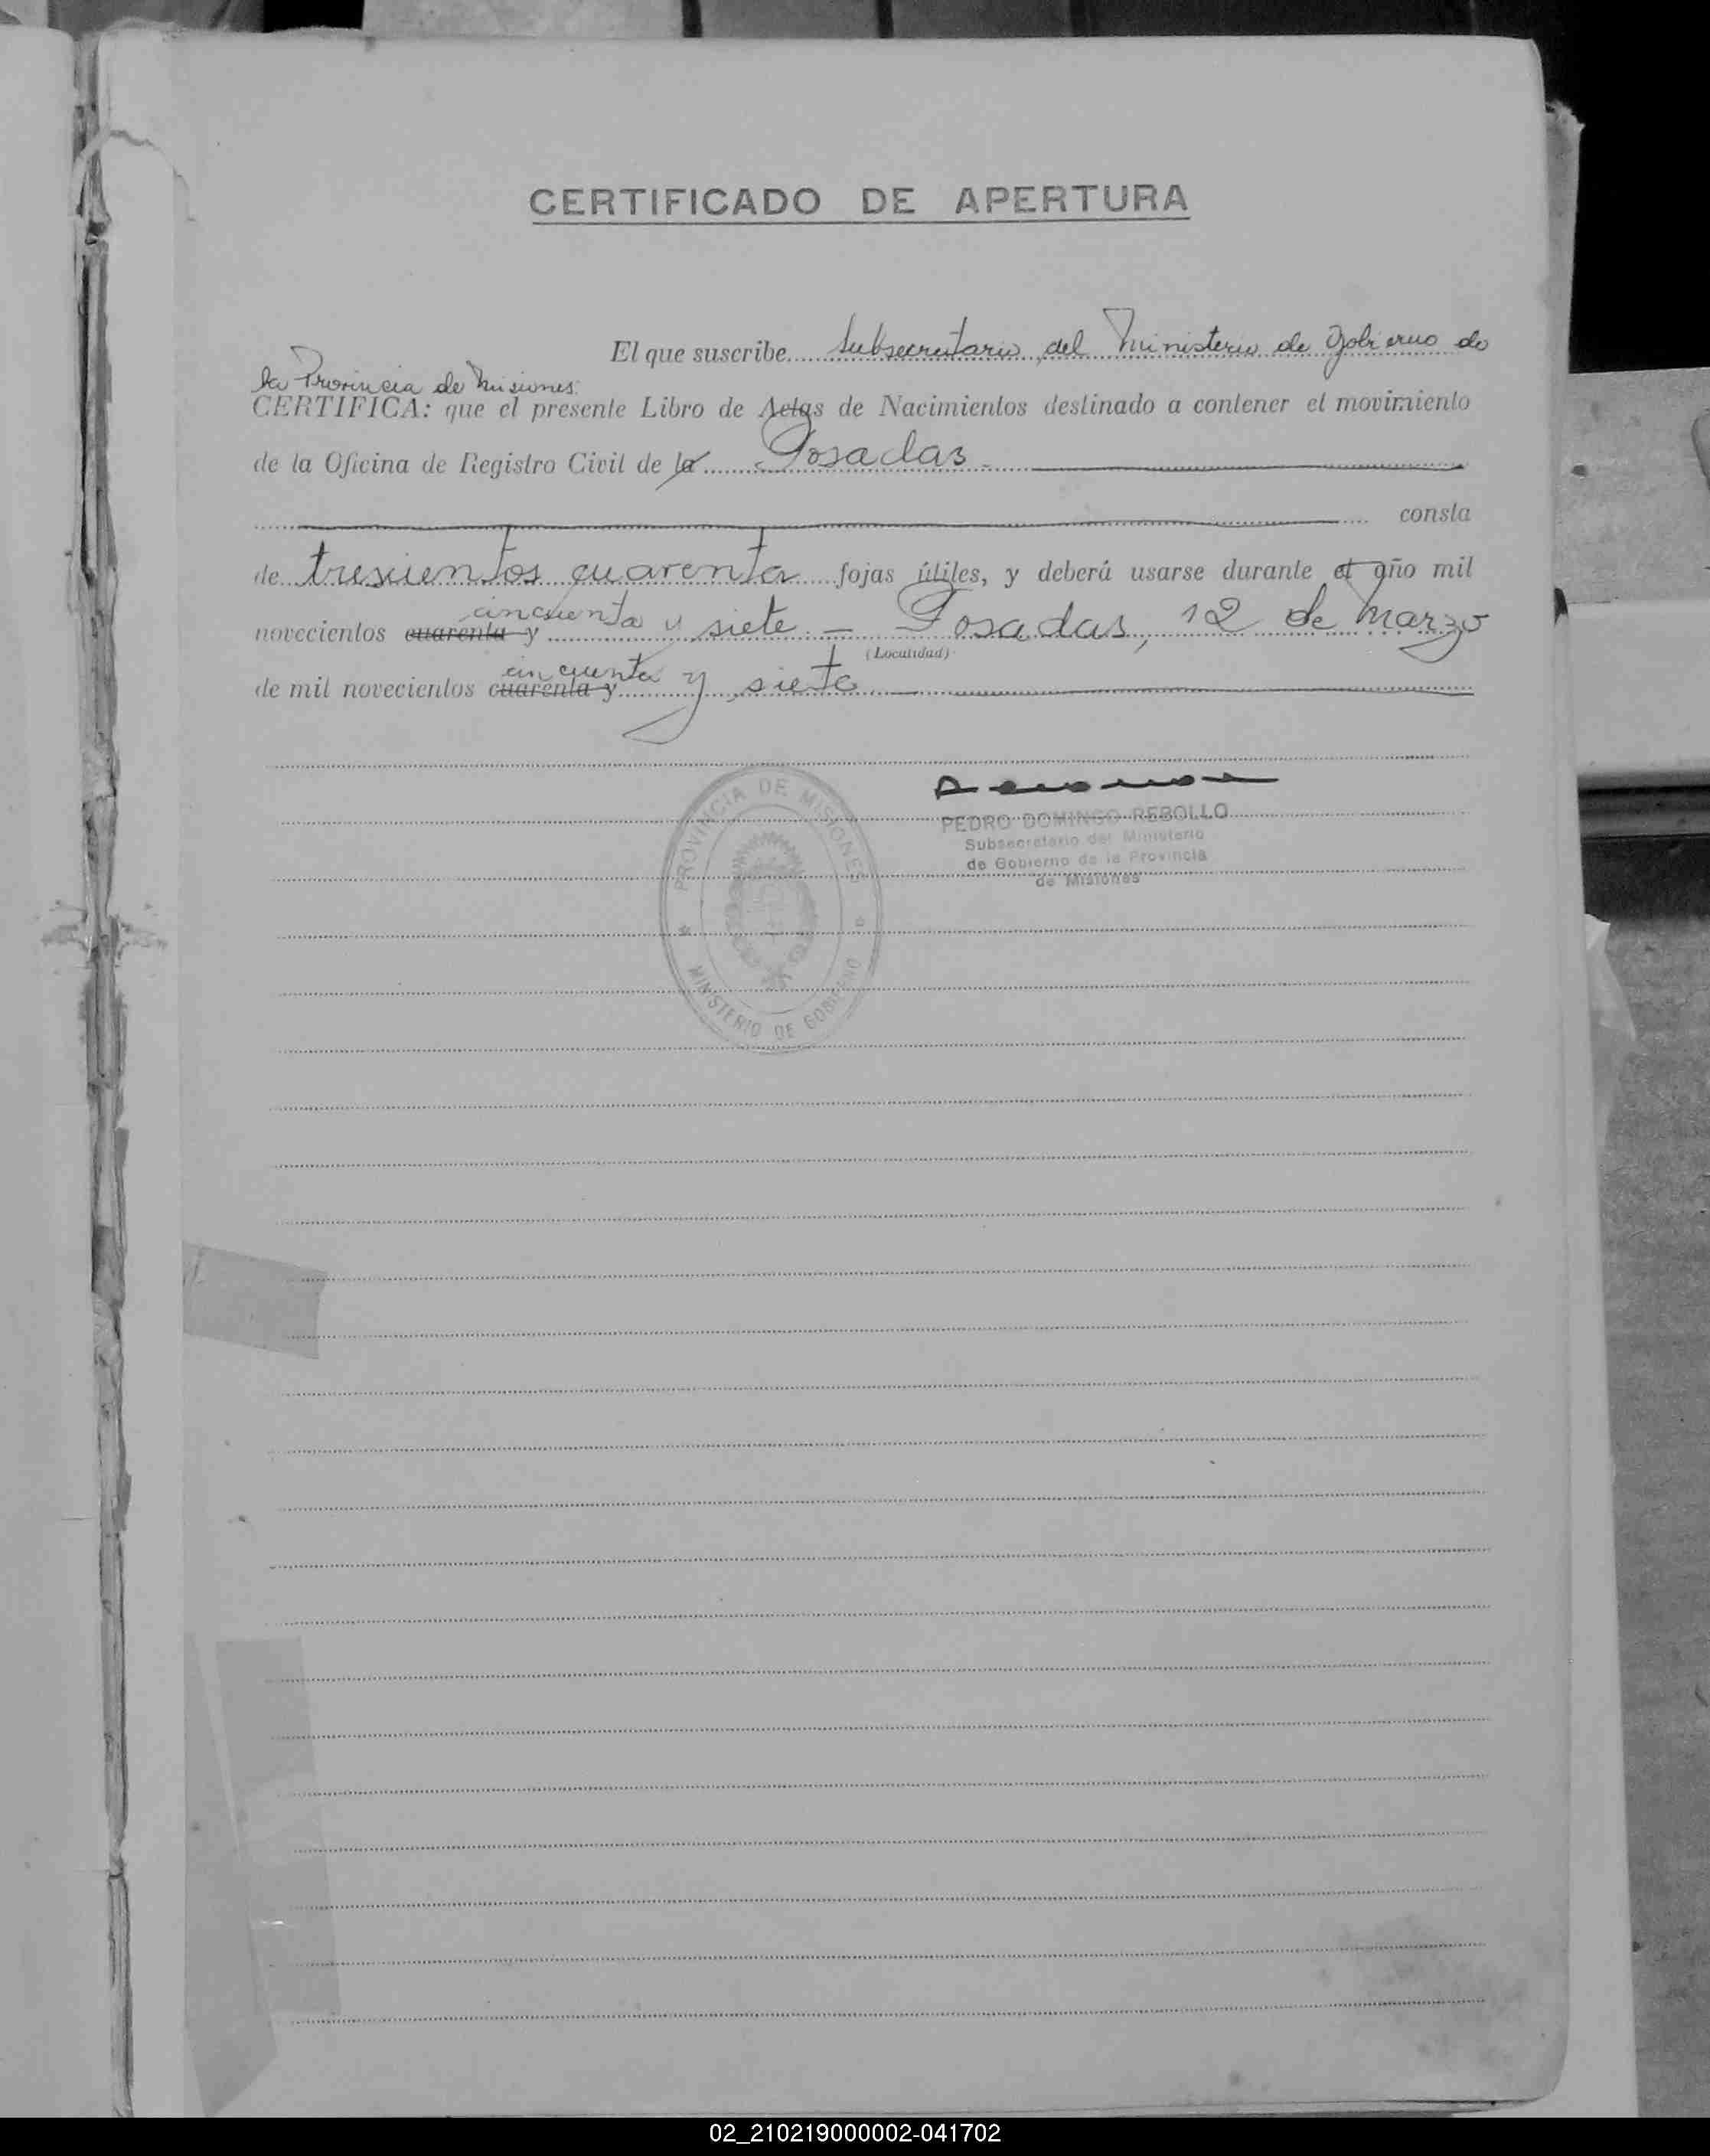 CERTIFICADO DE APERTURA
El que suscribe Subsecretario del Ministerio de Gobierno de
la Provincia de Misiones
CERTIFICA: que el presente Libro de Actas de Nacimientos destinado a contener el movimiento
de la Oficina de Registro Civil de la Posadas
consta
de trescientos cuarenta fojas útiles, y deberá usarse durante el año mil
cincuenta y siete - Posadas, 12 de Marzo
novecientos cuarenta y
(Localidad)
cincuenta y siete
de mil novecientos cuarenta y
PROVINCIA DE MISIONES
MINISTERIO DE GOBIERNO
PEDRO DOMINGO REBOLLO
Subsecretario del Ministerio
de Gobierno de la Provincia
de Misiones
02_210219000002-041702